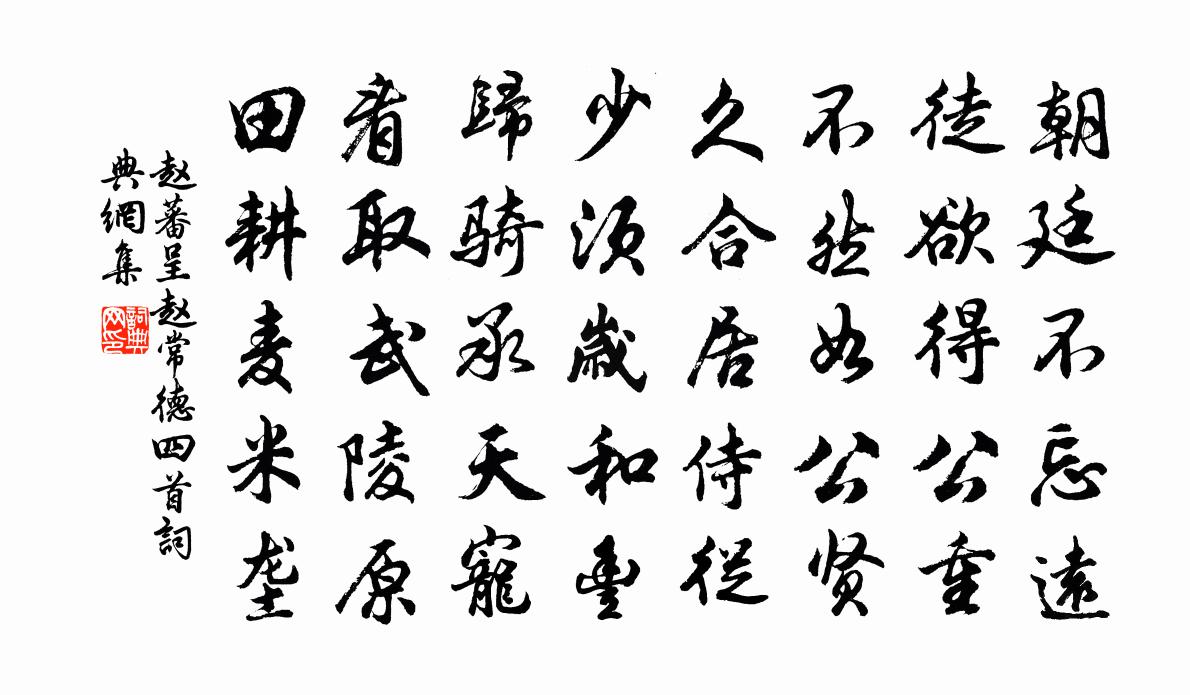 朝廷不忘遠
徒欲得公重
不然如公贤
久合居侍從
少须歲和豐
歸騎承天寵
看取武陵原
田耕麦米垄
赵蕃呈赵常德四首詞
典網集
詞典
网印